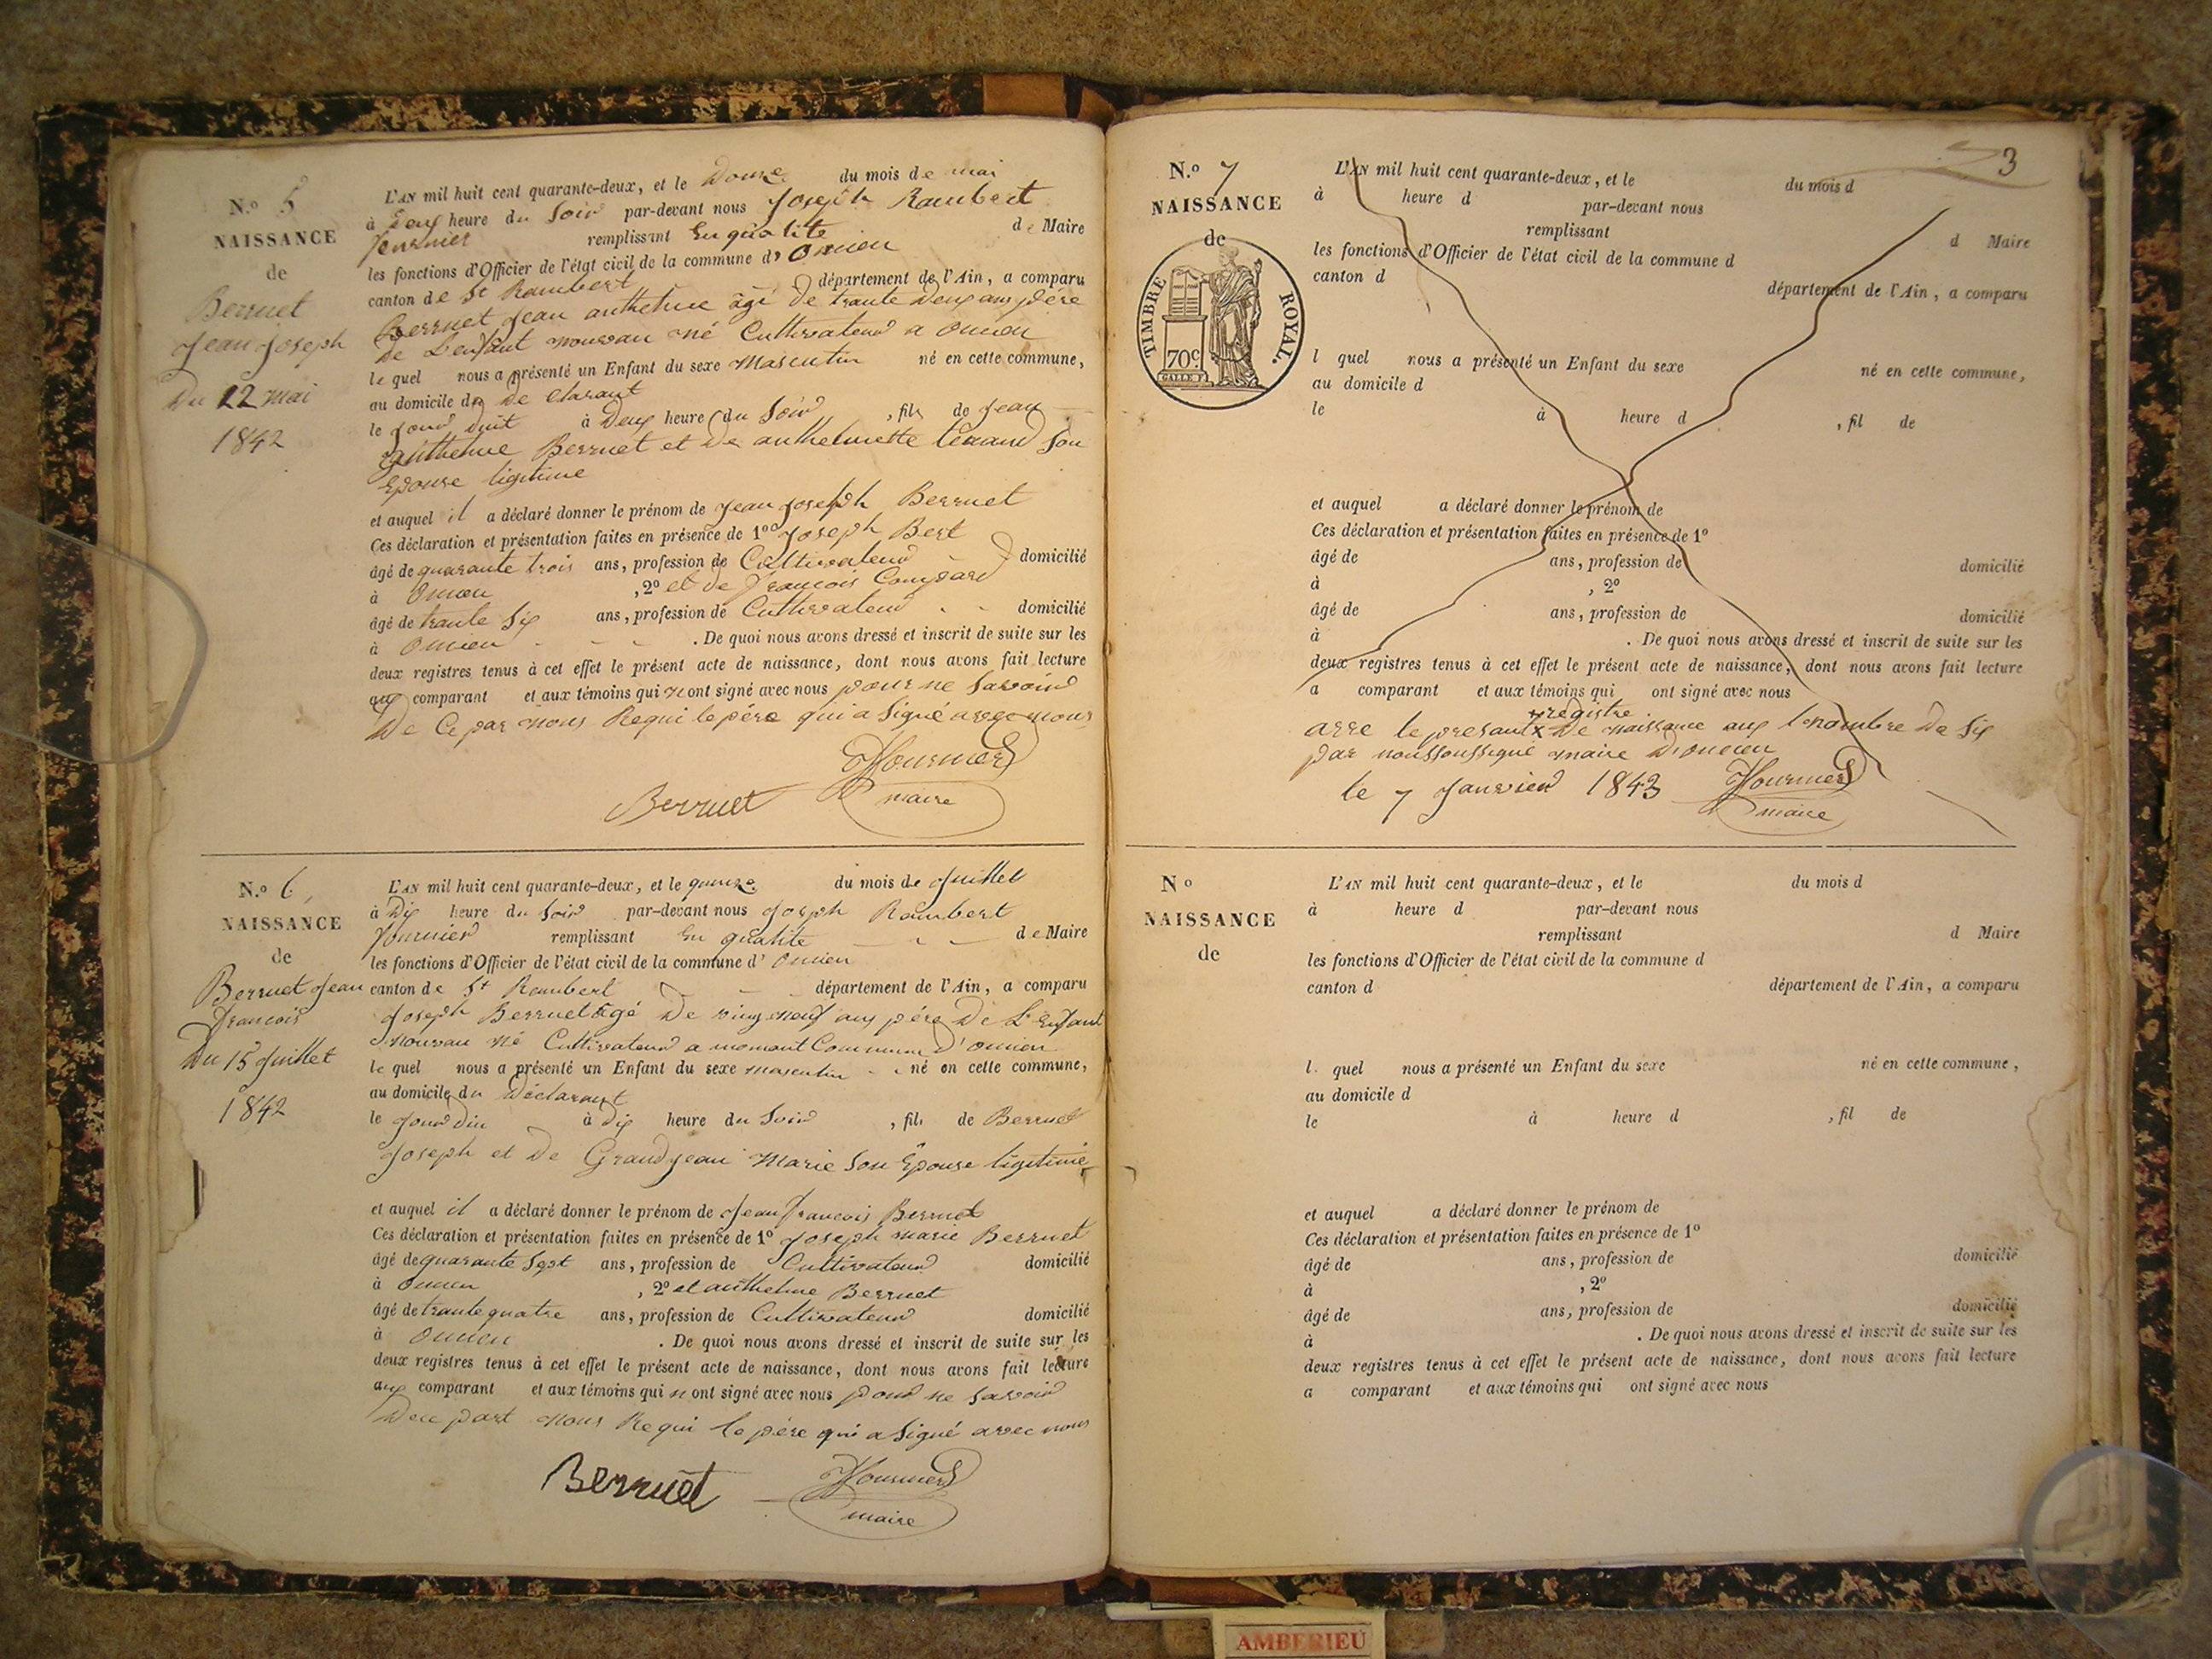 N.o 5
NAISSANCE
de
Berruet
Jean Joseph
Du 12 mai
1842
L'AN mil huit cent quarante-deux, et le Douze du mois de mai
à Deux heure du Soir par-devant nous Joseph Rambert
fournier remplissant En qualité de Maire
les fonctions d'Officier de l'état civil de la commune d' Oncieu
canton de St Rambert département de l'Ain, a comparu
Berruet Jean anthelme âgé De trante Deux ans père
De L'enfant nouveau né Cultivateur a oncieu
le quel nous a présenté un Enfant du sexe masculin né en cette commune,
au domicile du De Clarant
le jour Duit à Deux heure du Soir , fils de Jean
anthelme Berruet et De anthelmette tenand Son
Epouse ligitime
et auquel il a déclaré donner le prénom de Jean Joseph Berruet
Ces déclaration et présentation faites en présence de 1o Joseph Bert
âgé de quarante trois ans, profession de Cultivateur domicilié
à Oncieu , 2o et de francois Compard
âgé de trante Six ans, profession de Cultivateur domicilié
à Oncieu . De quoi nous avons dressé et inscrit de suite sur les
deux registres tenus à cet effet le présent acte de naissance, dont nous avons fait lecture
aux comparant et aux témoins qui n ont signé avec nous pour ne Savoir
De Ce par nous Requi le père qui a Signé avec nous
Berruet
JFournier
maire
N.o 6
NAISSANCE
de
Berruet Jean
francois
Du 15 Juillet
1842
L'AN mil huit cent quarante-deux, et le quinze du mois de Juillet
à Dix heure du Soir par-devant nous Joseph Rambert
fournier remplissant En qualité de Maire
les fonctions d'Officier de l'état civil de la commune d' Oncieu
canton de St Rambert département de l'Ain, a comparu
Joseph Berruet âgé De ving neuf ans père De L'Enfant
nouveau né Cultivateur a momont Commune d'oncieu
le quel nous a présenté un Enfant du sexe masculin né en cette commune,
au domicile du Déclarant
le Jour Diu à Dix heure du Soir , fils de Berruet
Joseph et De Grandjean Marie Son Epouse ligitime
et auquel il a déclaré donner le prénom de Jean francois Berruet
Ces déclaration et présentation faites en présence de 1o Joseph marie Berruet
âgé de quarante Sept ans, profession de Cultivateur domicilié
à Oncieu , 2o et anthelme Berruet
âgé de trante quatre ans, profession de Cultivateur domicilié
à Oncieu . De quoi nous avons dressé et inscrit de suite sur les
deux registres tenus à cet effet le présent acte de naissance, dont nous avons fait lecture
aux comparant et aux témoins qui n ont signé avec nous pour ne Savoir
Dece part nous Requi le père qui a Signé avec nous
Berruet
JFournier
maire
3
N.o 7
NAISSANCE
de
TIMBRE ROYAL.
70c
GALLE F.
L'AN mil huit cent quarante-deux, et le du mois d
à heure d par-devant nous
remplissant d Maire
les fonctions d'Officier de l'état civil de la commune d
canton d département de l'Ain, a comparu
l quel nous a présenté un Enfant du sexe né en cette commune,
au domicile d
le à heure d , fil de
et auquel a déclaré donner le prénom de
Ces déclaration et présentation faites en présence de 1o
âgé de ans, profession de domicilié
à , 2o
âgé de ans, profession de domicilié
à . De quoi nous avons dressé et inscrit de suite sur les
deux registres tenus à cet effet le présent acte de naissance, dont nous avons fait lecture
a comparant et aux témoins qui ont signé avec nous
registre
arre le presant x De naissance aux nombre De Six
par nous Soussigné maire D'oncieu
le 7 Janvier 1843 JFournier
maire
No
NAISSANCE
de
L'AN mil huit cent quarante-deux, et le du mois d
à heure d par-devant nous
remplissant d Maire
les fonctions d'Officier de l'état civil de la commune d
canton d département de l'Ain, a comparu
l quel nous a présenté un Enfant du sexe né en cette commune,
au domicile d
le à heure d , fil de
et auquel a déclaré donner le prénom de
Ces déclaration et présentation faites en présence de 1o
âgé de ans, profession de domicilié
à , 2o
âgé de ans, profession de domicilié
à . De quoi nous avons dressé et inscrit de suite sur les
deux registres tenus à cet effet le présent acte de naissance, dont nous avons fait lecture
a comparant et aux témoins qui ont signé avec nous
AMBERIEU